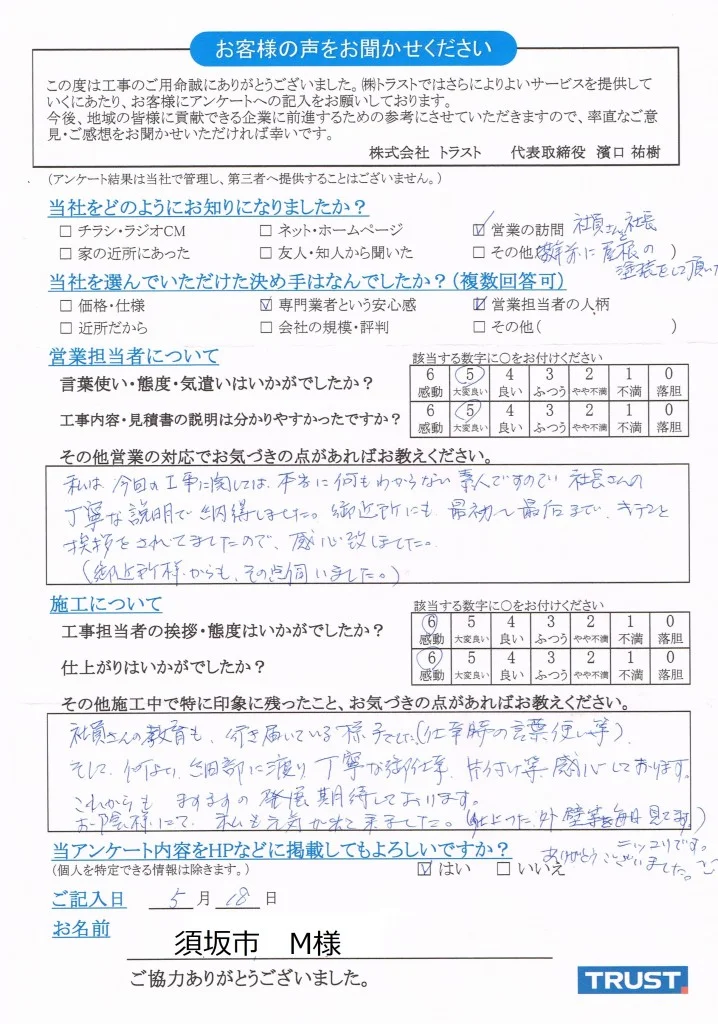 お客様の声をお聞かせください
この度は工事のご用命誠にありがとうございました。㈱トラストではさらによりよいサービスを提供して
いくにあたり、お客様にアンケートへの記入をお願いしております。
今後、地域の皆様に貢献できる企業に前進するための参考にさせていただきますので、率直なご意
見・ご感想をお聞かせいただければ幸いです。
株式会社 トラスト 代表取締役 濱口 祐樹
(アンケート結果は当社で管理し、第三者へ提供することはございません。)
当社をどのようにお知りになりましたか?
□ チラシ・ラジオCM □ ネット・ホームページ ☑ 営業の訪問 社員さんと社長
□ 家の近所にあった □ 友人・知人から聞いた □ その他 数年前に屋根の )
塗装をして頂いた
当社を選んでいただけた決め手はなんでしたか?(複数回答可)
□ 価格・仕様 ☑ 専門業者という安心感 ☑ 営業担当者の人柄
□ 近所だから □ 会社の規模・評判 □ その他( )
営業担当者について 該当する数字に○をお付けください
言葉使い・態度・気遣いはいかがでしたか? 6 5 4 3 2 1 0
感動 大変良い 良い ふつう やや不満 不満 落胆
工事内容・見積書の説明は分かりやすかったですか? 6 5 4 3 2 1 0
感動 大変良い 良い ふつう やや不満 不満 落胆
その他営業の対応でお気づきの点があればお教えください。
私は今回の工事に関しては、本当に何もわからない素人ですので、社長さんの
丁寧な説明で納得しました。御近所にも、最初〜最后まで、キチンと
挨拶をされてましたので、感心致しました。
(御近所様からも、その点伺いました。)
施工について 該当する数字に○をお付けください
工事担当者の挨拶・態度はいかがでしたか? 6 5 4 3 2 1 0
感動 大変良い 良い ふつう やや不満 不満 落胆
仕上がりはいかがでしたか? 6 5 4 3 2 1 0
感動 大変良い 良い ふつう やや不満 不満 落胆
その他施工中で特に印象に残ったこと、お気づきの点があればお教えください。
社員さんの教育も、行き届いている様子でした(仕事時の言葉使い等)
そして、何より、細部に渡り丁寧な御仕事、片付け等感心しております。
これからも ますますの発展期待しております。
お陰様にて、私も元気が出て来ました。(仕上った外壁等を毎日見てます)
ニッコリです。
当アンケート内容をHPなどに掲載してもよろしいですか? ありがとうございました。
(個人を特定できる情報は除きます。) ☑ はい □ いいえ
ご記入日 5 月 18 日
お名前 須坂市 M様
ご協力ありがとうございました。
TRUST